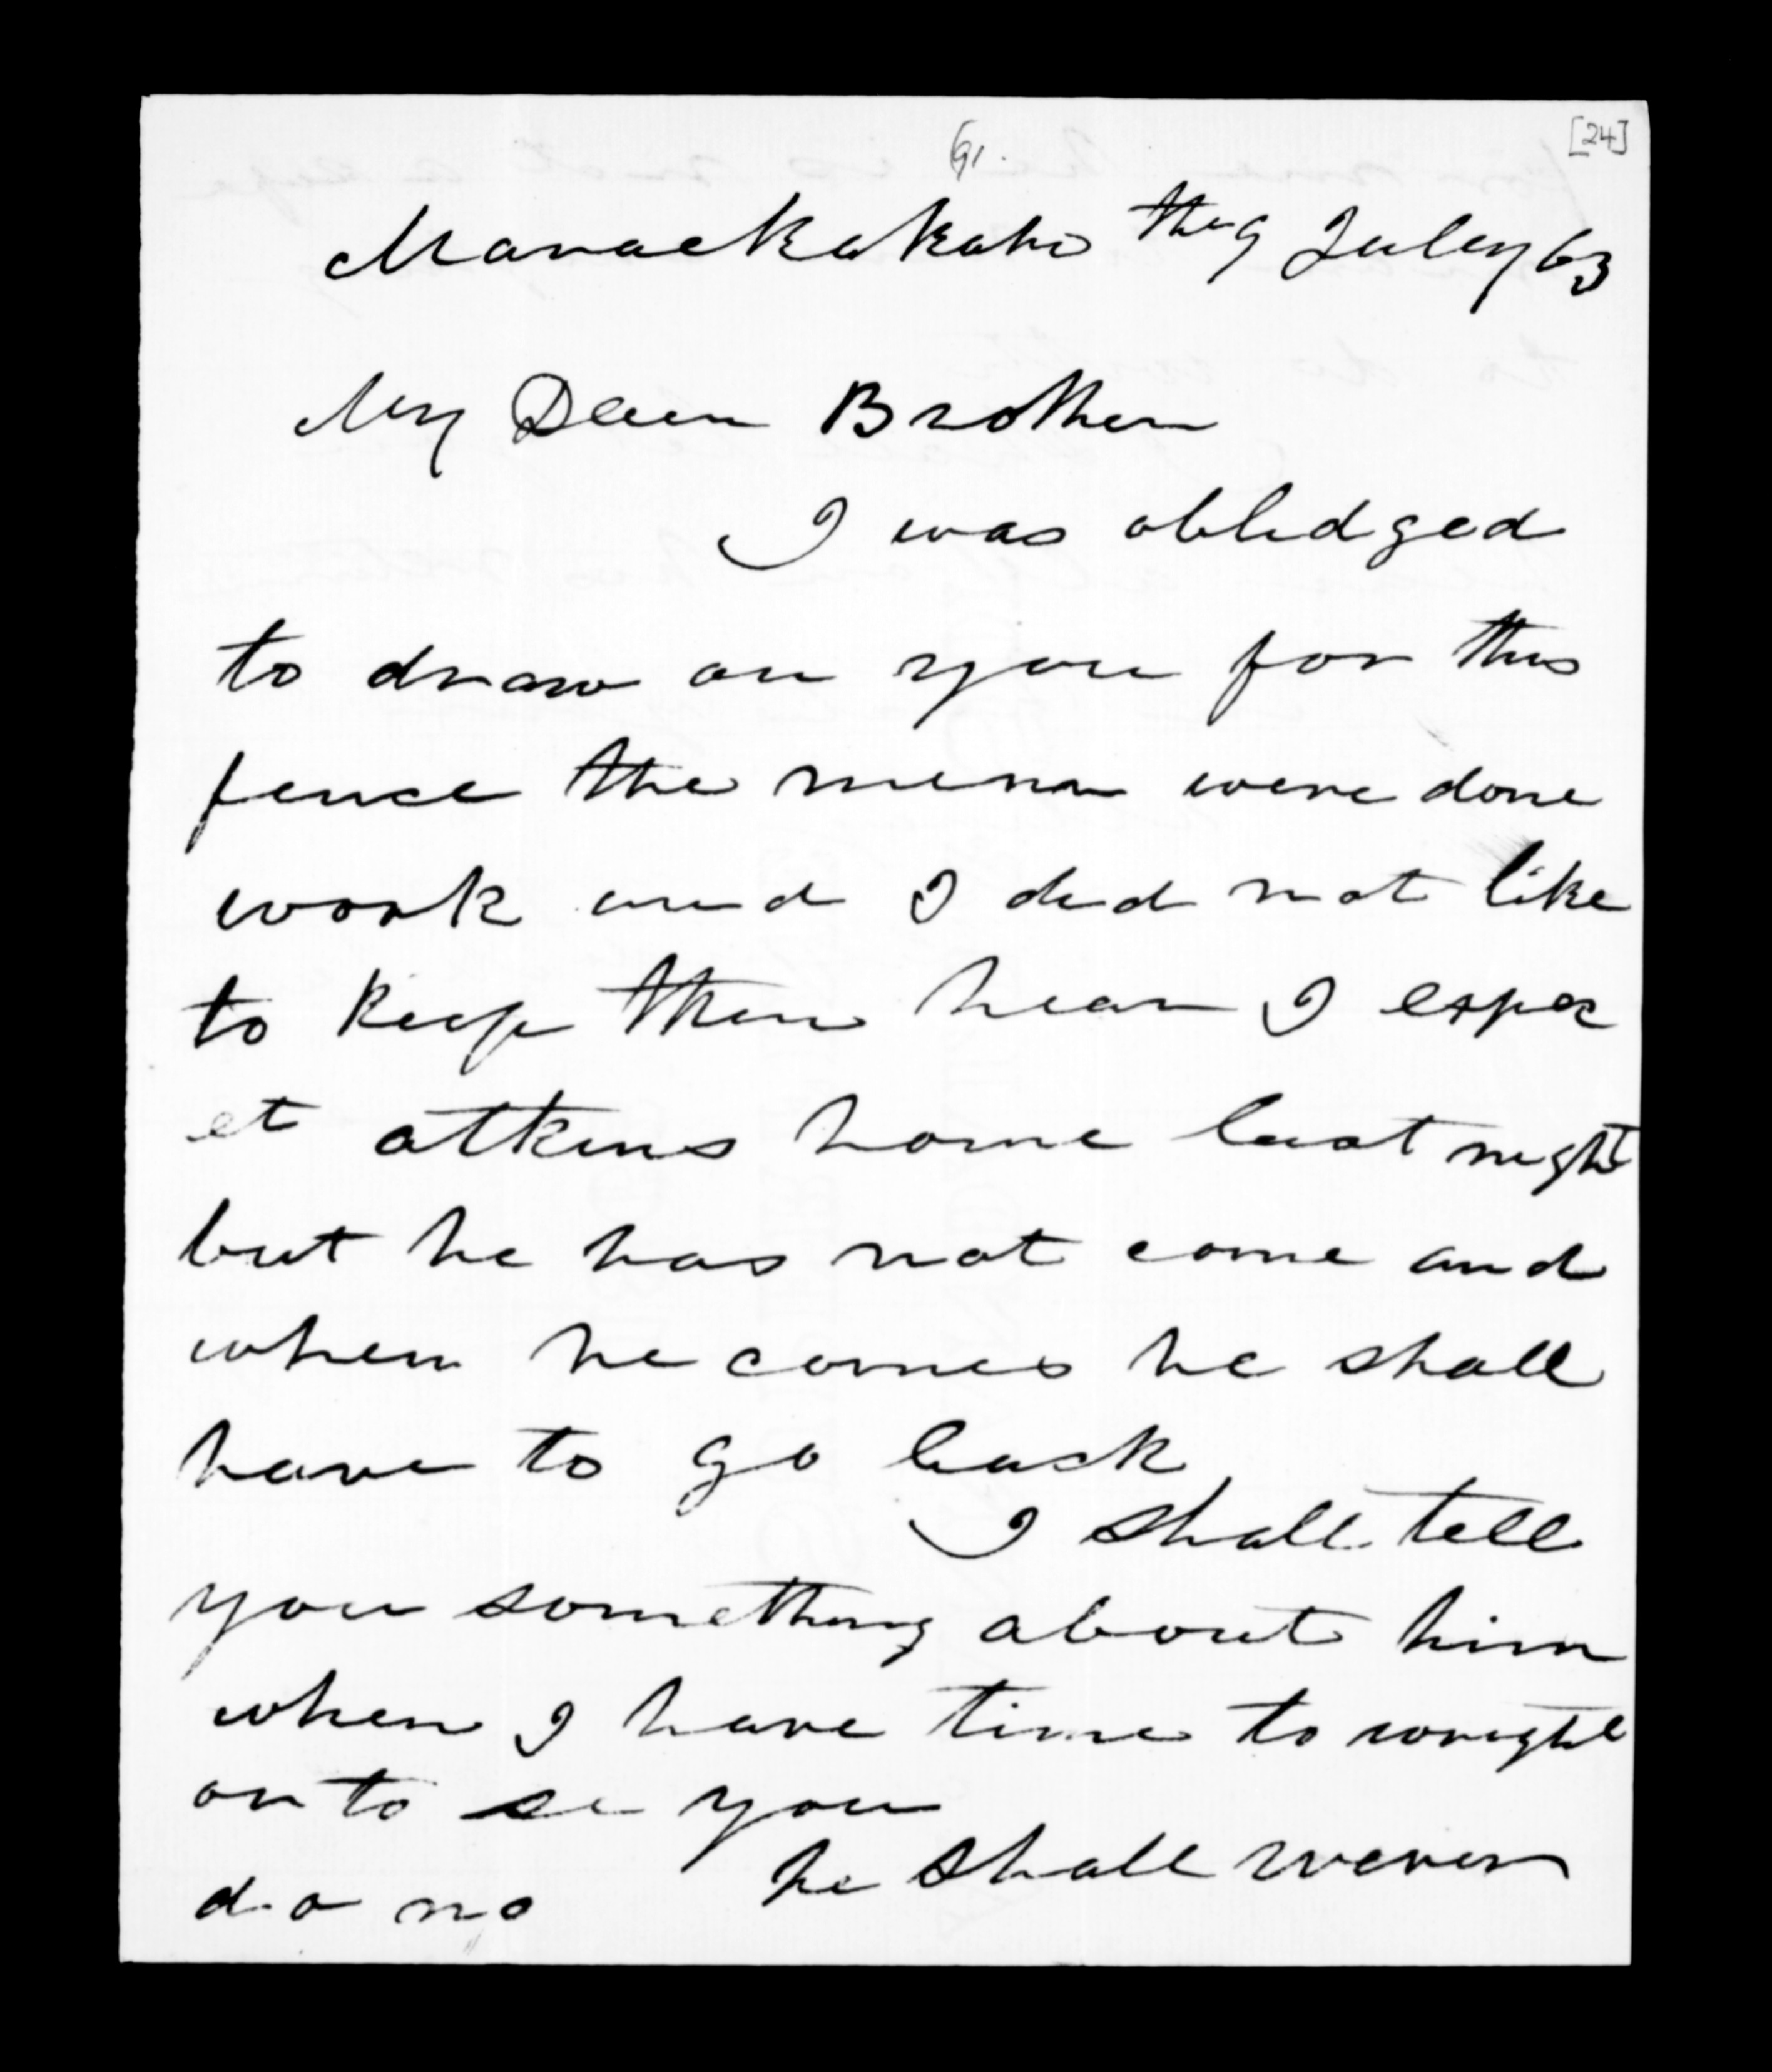 [24]
61.
Maraekakaho the 9 July 63
My Dear Brother
I was obledged
to draw on you for this
fence the menn were done
work and I did not like
to keep them hear I expec
et atkins home last night
but he has not come and
when he comes he shall
have to go back
I shall tell
you something about him
when I have time to wright
or to se you
he shall never
do no